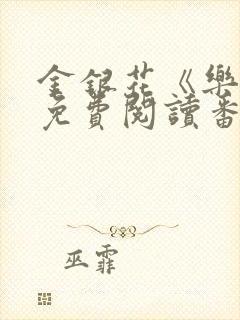 金銀花《樂
免費閱讀番
巫霏